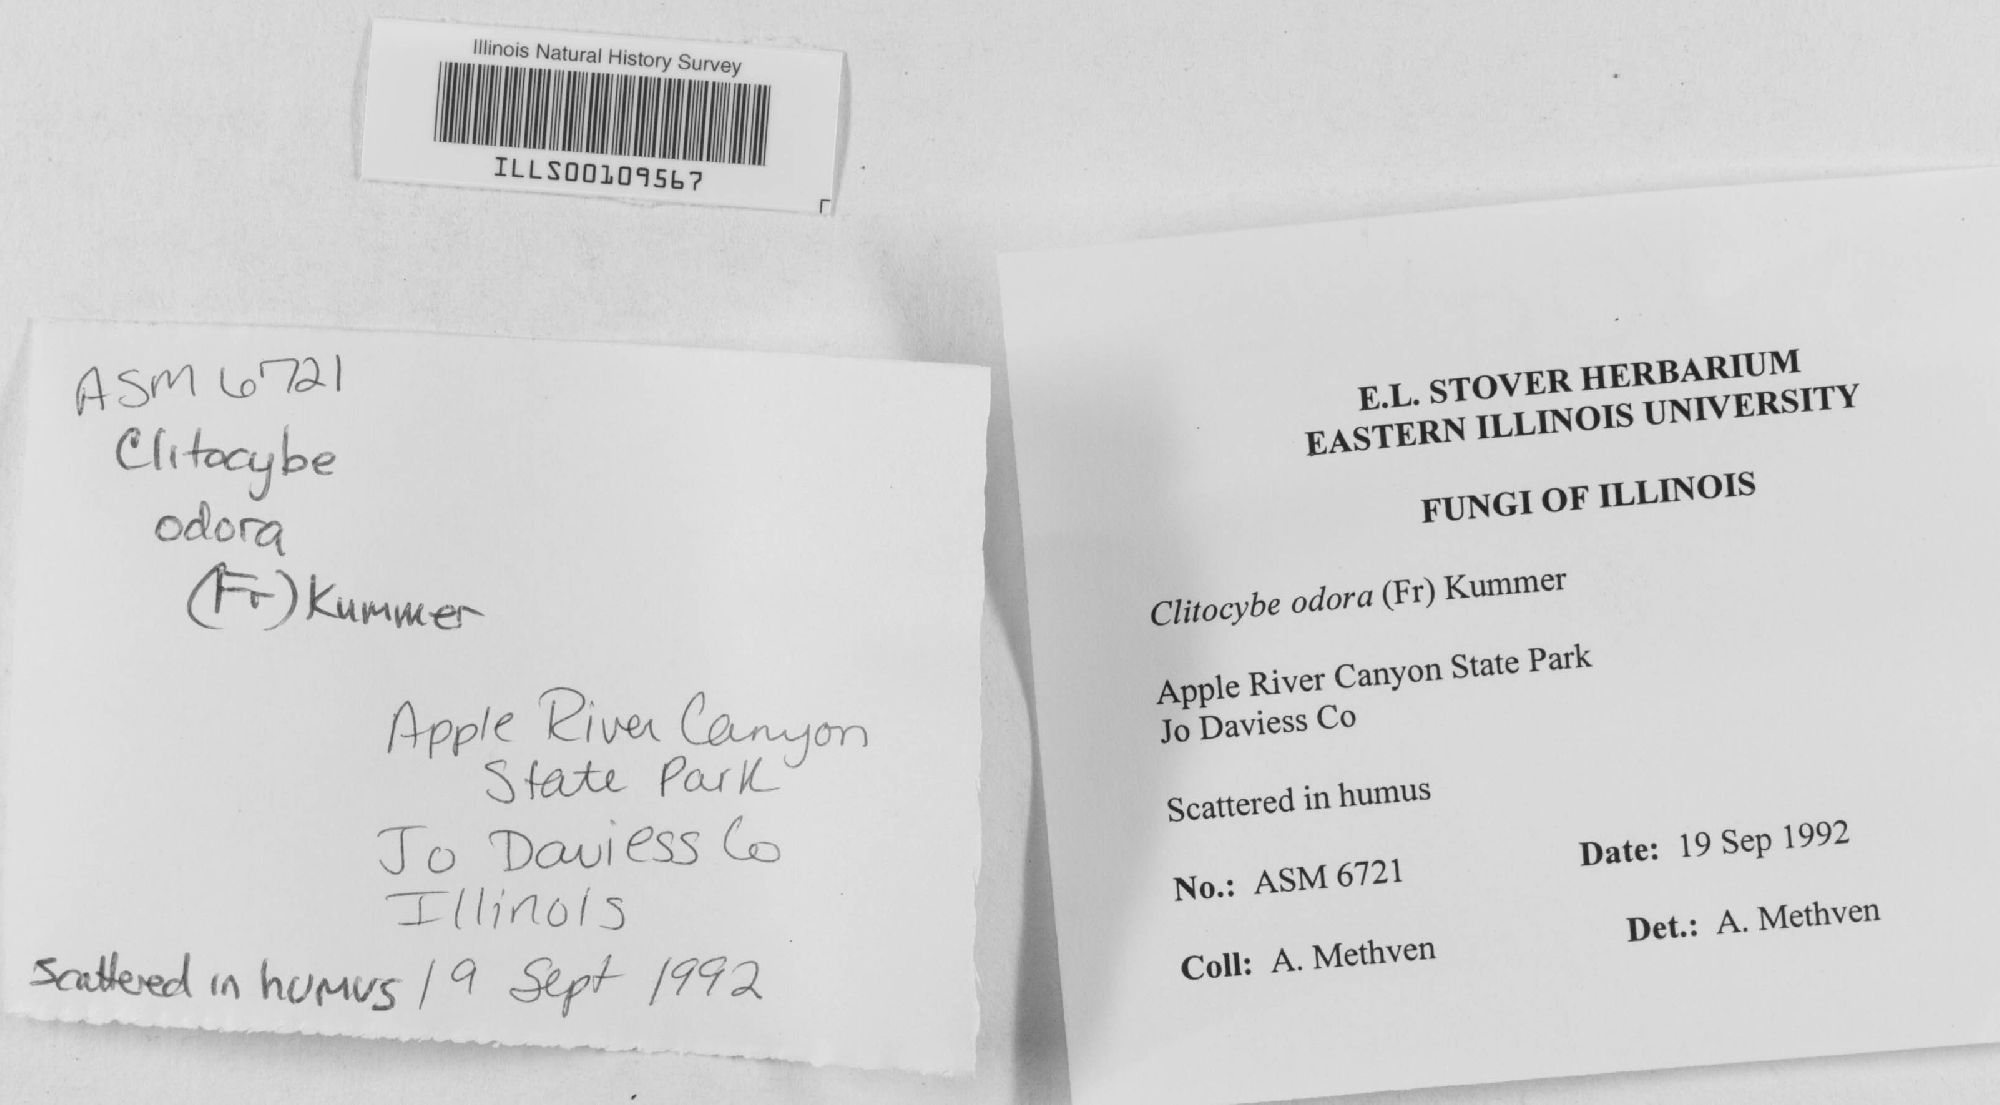 Illinois Natural History Survey
ILLS00109567
ASM 6721
Clitocybe
odora
(Fr) Kummer
Apple River Canyon
State Park
Jo Daviess Co
Illinois
Scattered in humus 19 Sept 1992
E.L. STOVER HERBARIUM
EASTERN ILLINOIS UNIVERSITY
FUNGI OF ILLINOIS
Clitocybe odora (Fr) Kummer
Apple River Canyon State Park
Jo Daviess Co
Scattered in humus
No.: ASM 6721 Date: 19 Sep 1992
Coll: A. Methven Det.: A. Methven